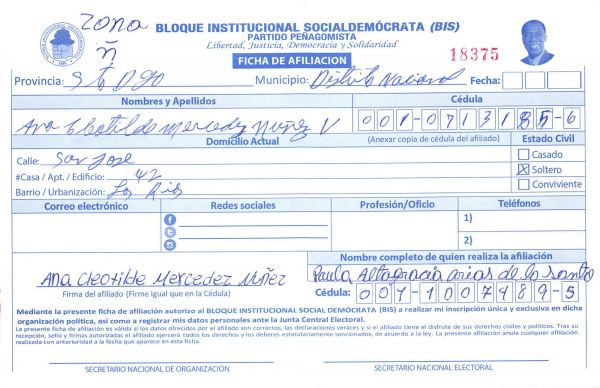 Zona
Ñ
BLOQUE INSTITUCIONAL SOCIALDEMÓCRATA (BIS)
PARTIDO PEÑAGOMISTA
Libertad, Justicia, Democracia y Solidaridad
FICHA DE AFILIACION
18375
Provincia: Sto Dgo Municipio: Distrito Nacional Fecha:
Nombres y Apellidos Cédula
Ana Cleotilde Mercedez Nuñez V 001-0713185-6
Domicilio Actual (Anexar copia de cédula del afiliado) Estado Civil
Calle: San Jose Casado
#Casa / Apt. / Edificio: 42 Soltero
Barrio / Urbanización: Los Rios Conviviente
Correo electrónico Redes sociales Profesión/Oficio Teléfonos
1)
2)
Nombre completo de quien realiza la afiliación
Ana Cleotilde Mercedez Nuñez Paula Altagracia arias de lo santo
Firma del afiliado (Firme igual que en la Cédula) Cédula: 001-1007489-5
Mediante la presente ficha de afiliación autorizo al BLOQUE INSTITUCIONAL SOCIAL DEMÓCRATA (BIS) a realizar mi inscripción única y exclusiva en dicha
organización política, así como a registrar mis datos personales ante la Junta Central Electoral.
La presente ficha de afiliación es válida si los datos ofrecidos por el afiliado son correctos, las declaraciones veraces y si el afiliado tiene el disfrute de sus derechos civiles y políticos. Tras su
recepción, sello y firmas autorizadas el afiliado ejercerá todos los derechos y los deberes estatutariamente sancionados, de acuerdo a la ley. La presente afiliación anula cualquier afiliación
realizada con anterioridad a la fecha que aparece en esta ficha.
SECRETARIO NACIONAL DE ORGANIZACIÓN SECRETARIO NACIONAL ELECTORAL